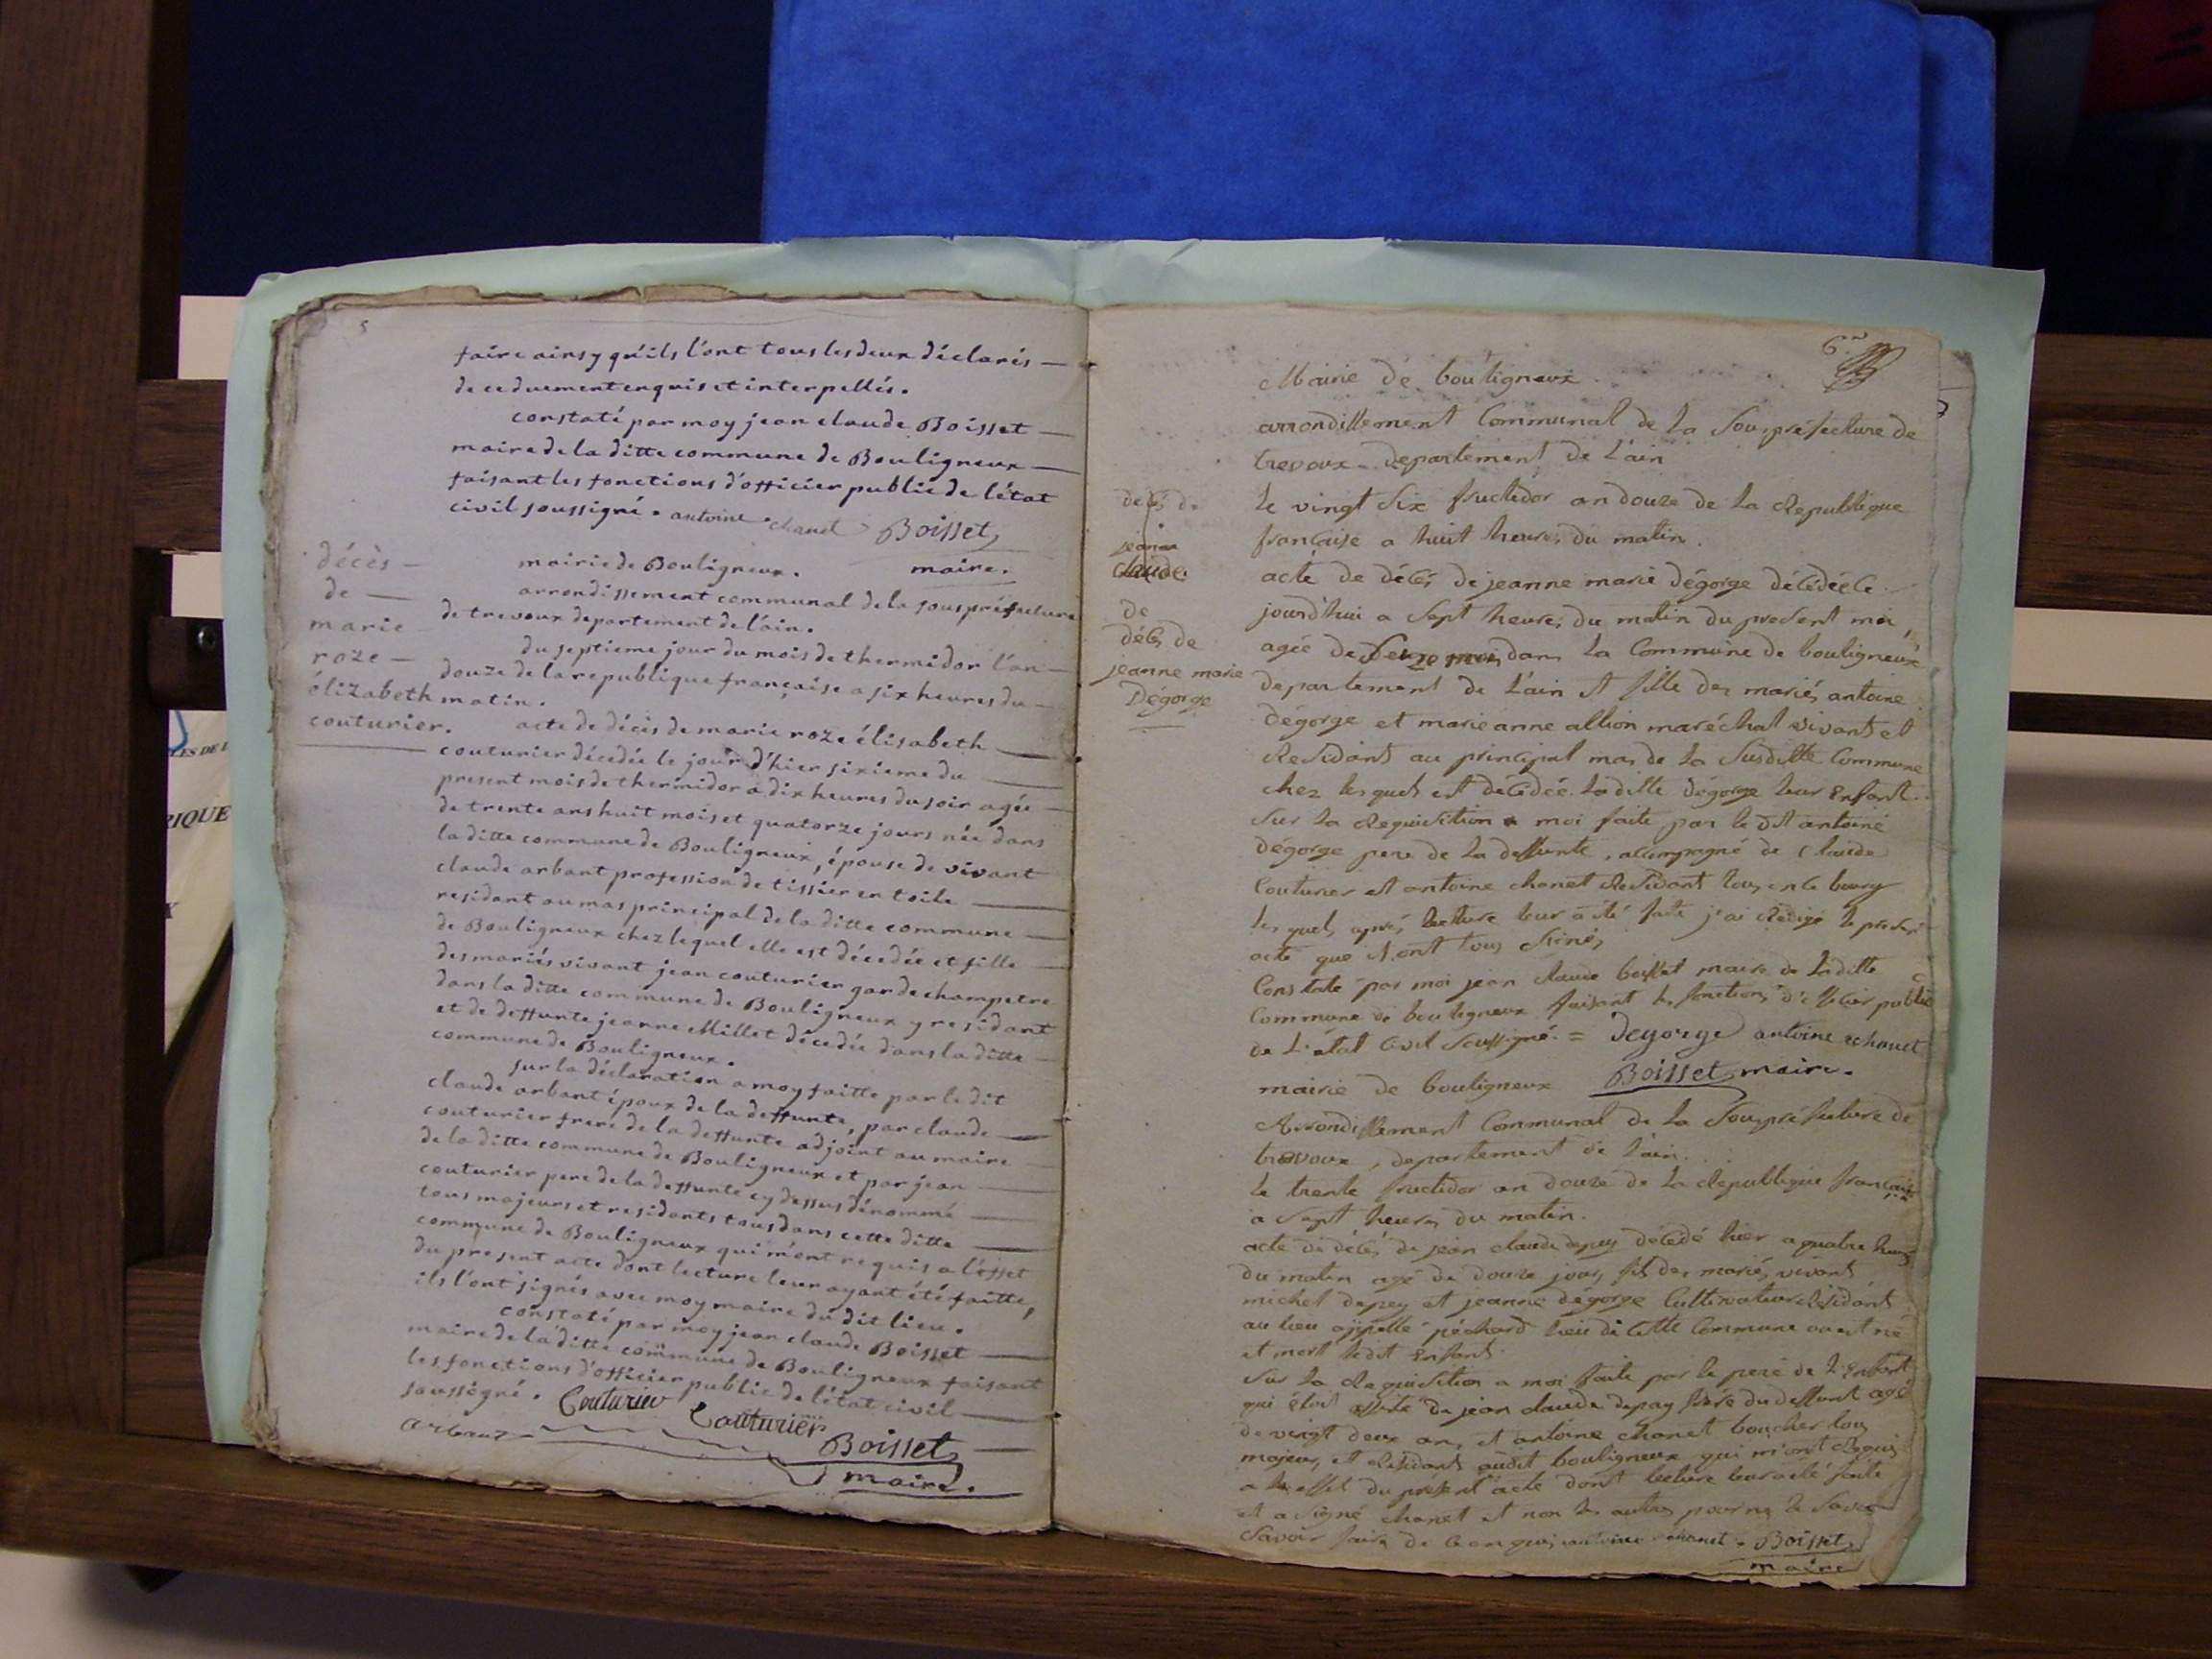 5
faire ainsy qu'ils l'ont tous les deux déclarés
de ce duement enquis et interpellés.
constaté par moy jean claude Boisset
maire de la ditte commune de Bouligneux
faisant les fonctions d'officier public de l'état
civil soussigné. antoine chanel Boisset
maire.
décès
de
marie
roze
élizabeth
couturier.
mairie de Bouligneux.
arrondissement communal de la souspréfecture
de trevoux departement de l'ain.
du septieme jour du mois de thermidor l'an
douze de la republique française a six heures du
matin.
acte de décès de marie roze élisabeth
couturier décedée le jour d'hier sixieme du
present mois de thermidor a dix heures du soir agée
de trente ans huit mois et quatorze jours née dans
la ditte commune de Bouligneux, épouse de vivant
claude arbant profession de tissier en toile
residant au mas principal de la ditte commune
de Bouligneux chez lequel elle est décedée et fille
des mariés vivant jean couturier garde champetre
dans la ditte commune de Bouligneux y residant
et de deffunte jeanne Millet décedée dans la ditte
commune de Bouligneux.
sur la déclaration a moy faitte par le dit
claude arbant époux de la deffunte, par claude
couturier frere de la deffunte adjoint au maire
de la ditte commune de Bouligneux et par jean
couturier pere de la deffunte cy dessus dénommé
tous majeurs et residants tous dans cette ditte
commune de Bouligneux qui m'ont requis a l'effet
du present acte dont lecture leur ayant été faitte,
ils l'ont signés avec moy maire du dit lieu.
constaté par moy jean claude Boisset
maire de la ditte commune de Bouligneux faisant
les fonctions d'officier public de l'état civil
soussigné. Couturier Couturier
Boisset
maire.
6
Mairie de bouligneux
arrondissement Communal de la Souspréfecture de
trevoux departement de L'ain
le vingt Six fructidor an douze de la Republique
française a huit heures du matin.
acte de décès de jeanne marie dégorge décédée ce
jourd'hui a Sept heures du matin du present moi,
agée de dans la Commune de bouligneux
departement de L'ain et fille des mariés antoine
dégorge et marie anne allion maréchal vivant et
Residant au principal mas de la Susditte Commune
chez lesquels est décédée laditte dégorge leur Enfant.
Sur la Requisition a moi faite par le dit antoine
dégorge pere de la deffunte, accompagné de Claude
Couturier et antoine chanel Residant tous en le bourg
lesquels aprés lecture leur a été faite j'ai Redigé le present
acte que ont tous Signés
Constaté par moi jean claude boisset maire de laditte
Commune de bouligneux faisant les fonctions d'officier public
de L'état civil Soussigné. = Degorge antoine chanel
Boisset maire.
decès de
jean
claude
de
décès de
jeanne marie
Dégorge
mairie de bouligneux
Arrondissement Communal de la Souspréfecture de
trevoux, departement de l'ain.
le trente fructidor an douze de la Republique française
a Sept heures du matin.
acte de décès de jean claude depey décédé hier a quatre heures
du matin agé de douze jours, fils des mariés vivant
michel depey et jeanne dégorge Cultivateur Residant
au lieu appellé péchard lieu de cette Commune ou est né
et mort ledit Enfant.
Sur la Requisition a moi faite par le pere de l'Enfant
qui étoit assisté de jean claude depey frere du deffunt agé
de vingt deux ans et antoine chanel boucher tous
majeurs et Residants audit bouligneux qui m'ont Requis
a l'effet du présent acte dont lecture leur a été faite
et a signé chanel et non les autres pour ne le Savoir
Savoir faire de ce enquis antoine chanel. Boisset
maire